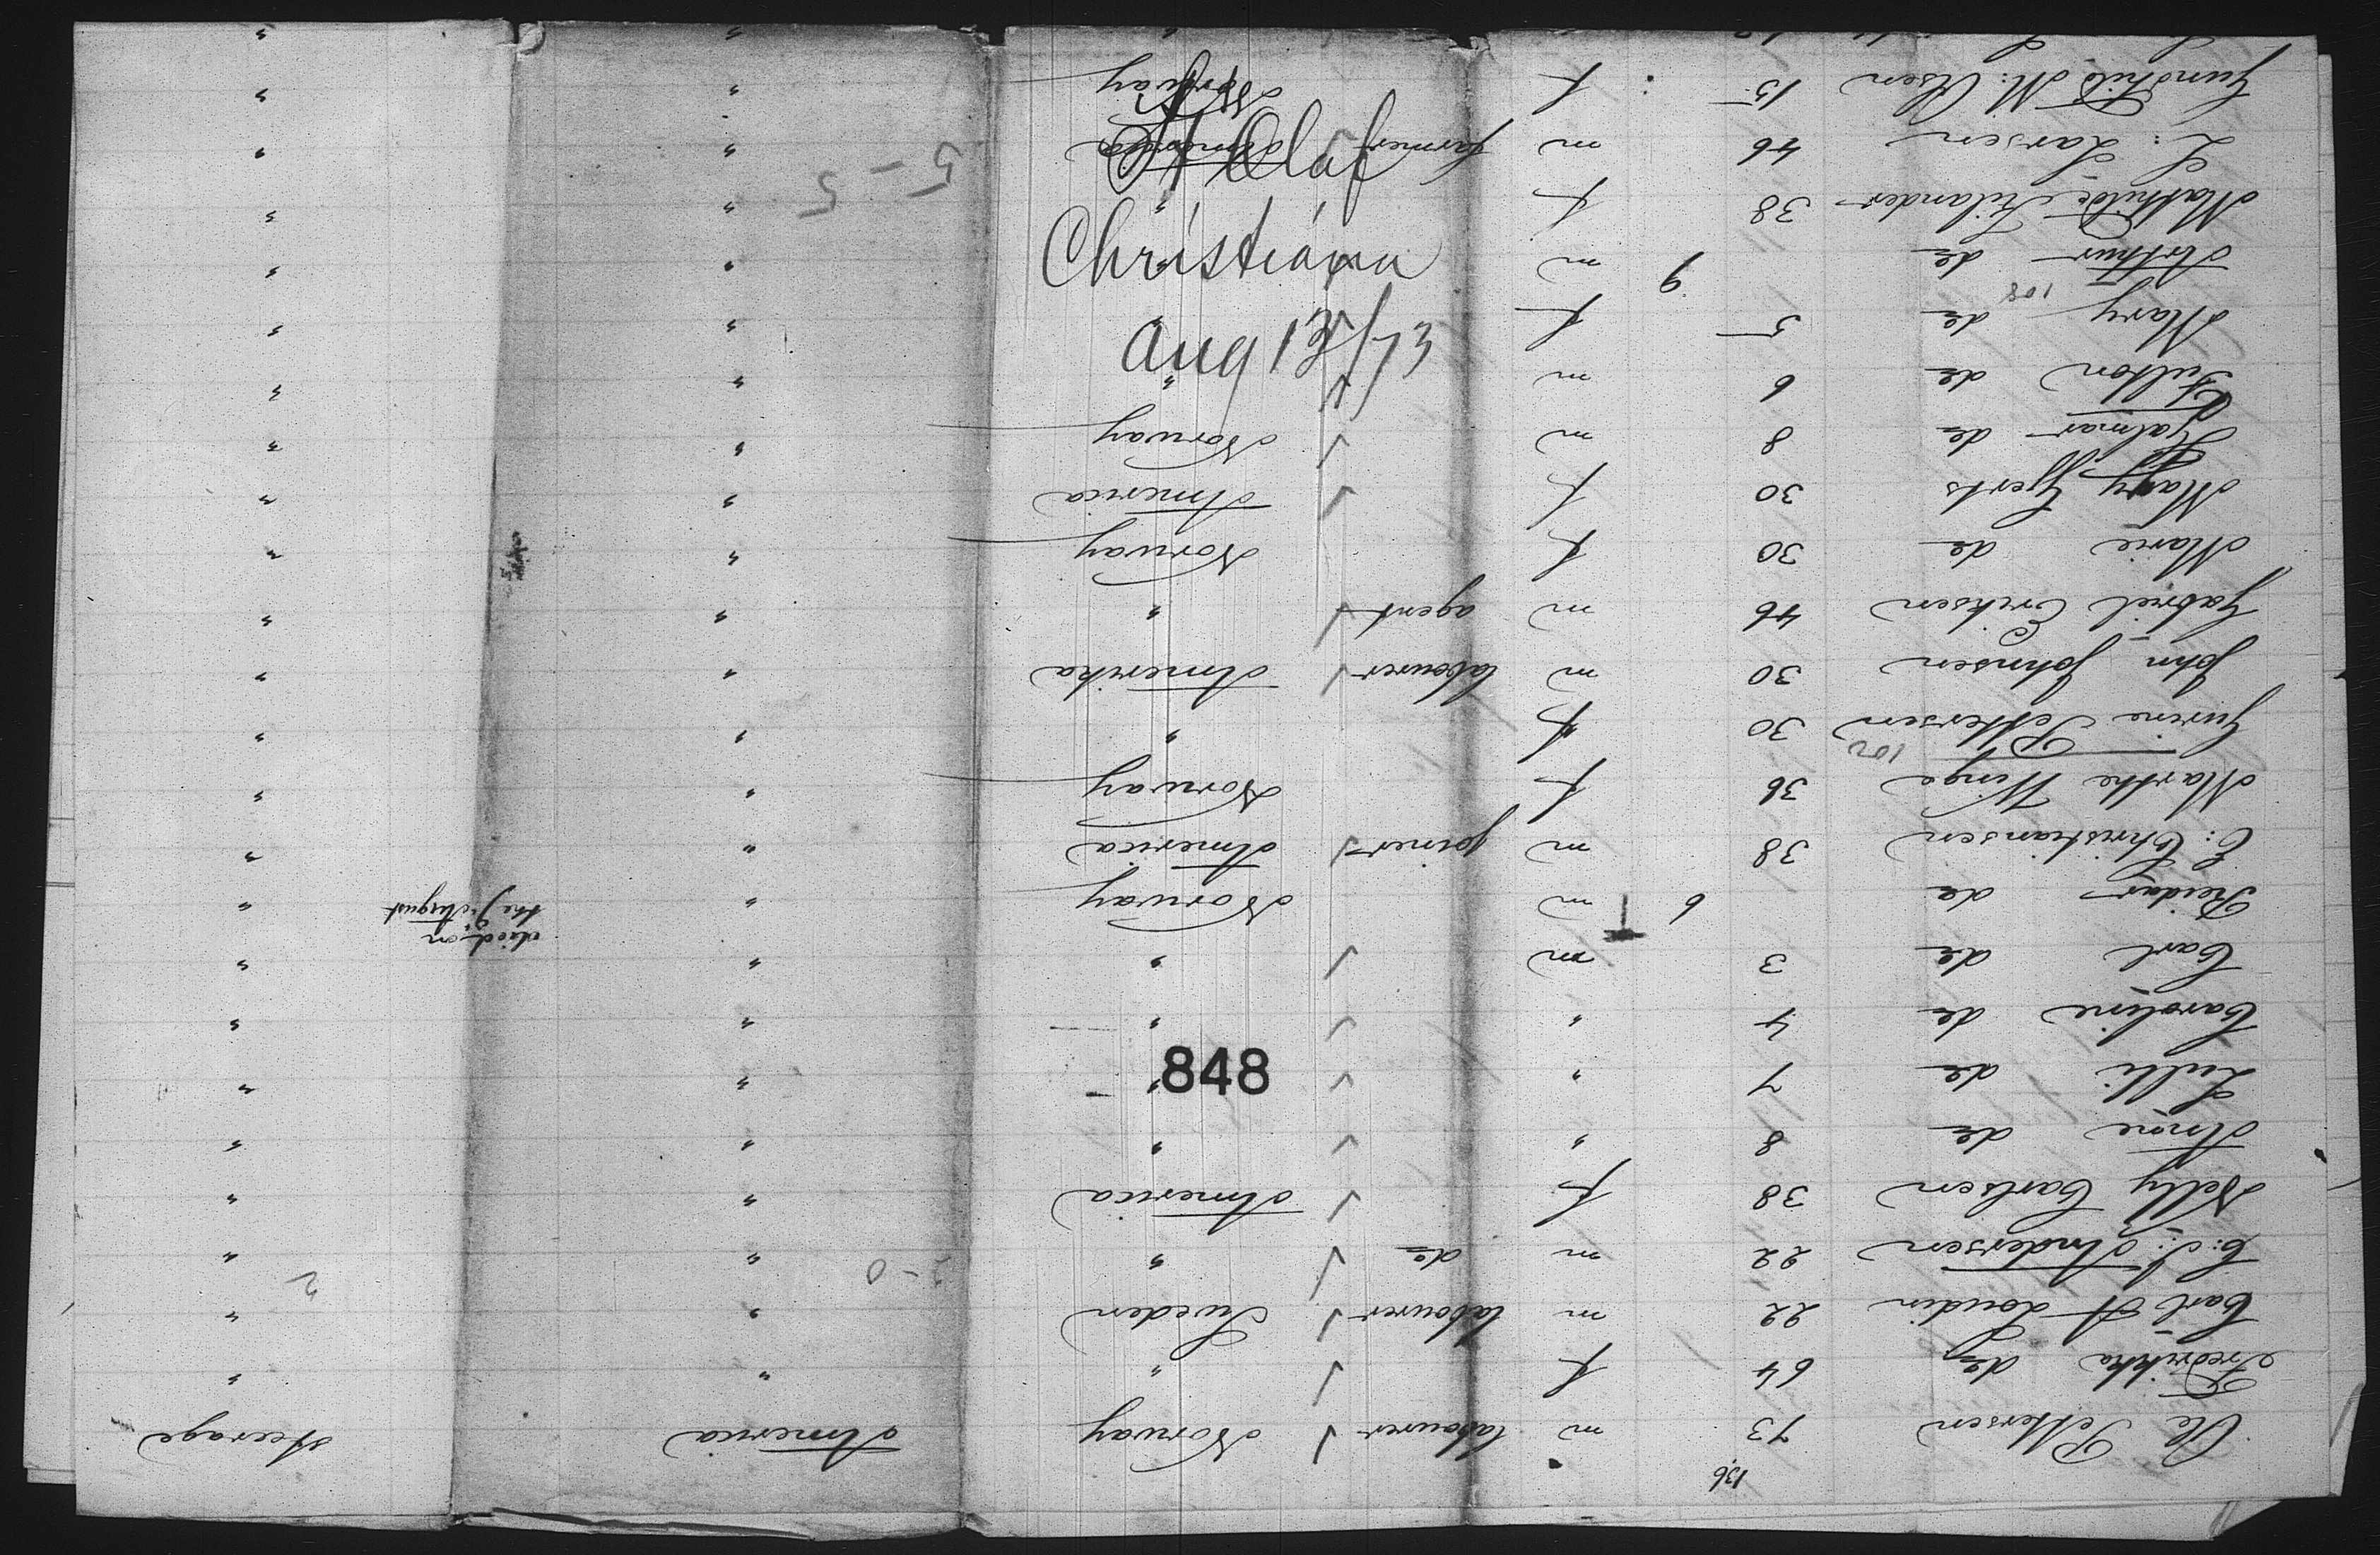 St Olaf
Christiana
Aug 13/73
848
136
Ole Pettersen 73 m labourer Norway America Steerage
Fredrikke do 64 f " " "
Carl A Loudin 22 m labourer Sweden " "
C: J: Andersen 22 m do " " "
2-0 2
Nelly Carlsen 38 f America " "
Anne do 8 " " " "
Lulli do 7 " " " "
Caroline do 4 " " " "
Carl do 3 m " " "
Reidar do 6 m Norway " died on the 9 August "
C: Christiansen 38 m joiner America " "
Marthe Winge 36 f Norway " "
102
Gurine Pettersen 30 f " " "
John Johnsen 30 m labourer Amerika " "
Gabriel Eriksen 46 m agent " " "
Marie do 30 f Norway " "
Mary Gjerts 30 f America " "
Hjalmar do 8 m Norway " "
Fulton do 6 m " " "
Mary do 5 f " " "
108
Arthur do 9 m " " "
Mathilde Filander 38 f " " "
5-5
L: Larsen 46 m farmer America " "
Gundhild M: Olsen 15 f Norway " "